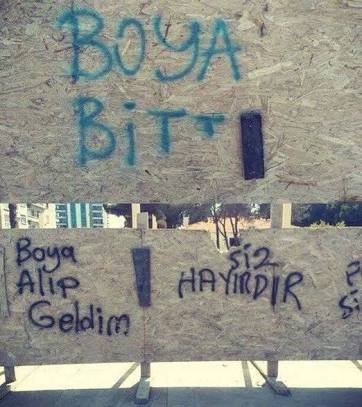 BOYA
BiTT
Boya
Alıp
Geldim
Siz
HAYIRDIR